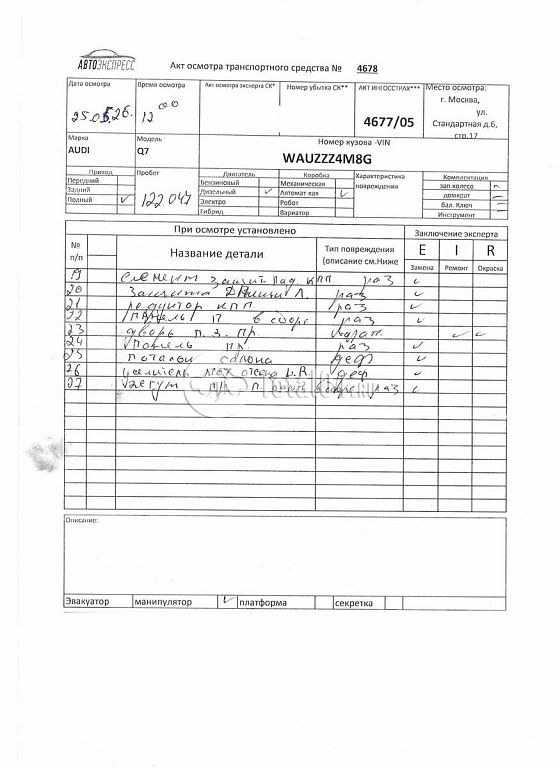 АВТОЭКСПРЕСС
Акт осмотра транспортного средства № 4678
Дата осмотра
Время осмотра
Акт осмотра эксперта СК*
Номер убытка СК**
АКТ ИНГОССТРАХ***
Место осмотра:
12 00
4677/05
г. Москва,
ул.
Стандартная д.6,
стр.17
Марка
Модель
Номер кузова -VIN
AUDI
Q7
WAUZZZ4M8G
Привод
Пробег
Двигатель
Коробка
Характеристика
повреждения
Комплектация
Передний
Бензиновый
Механическая
зап.колесо
Задний
122.047
Дизельный
Автомат кая
домкрат
Полный
Электро
Робот
бал. Ключ
Гибрид
Вариатор
Инструмент
При осмотре установлено
Заключение эксперта
№
п/п
Название детали
Тип повреждения
(описание см.Ниже
E I R
Замена Ремонт Окраска
19 элемент защит. под кпп. раз
20 Защита Л. раз
21 редуктор кпп. раз
22 П в сборе раз
23 дверь п. з. пр.
24 пр. раз
25 потолок салона деф
26 деф
27 жгут п. раз
Описание:
Эвакуатор манипулятор платформа секретка